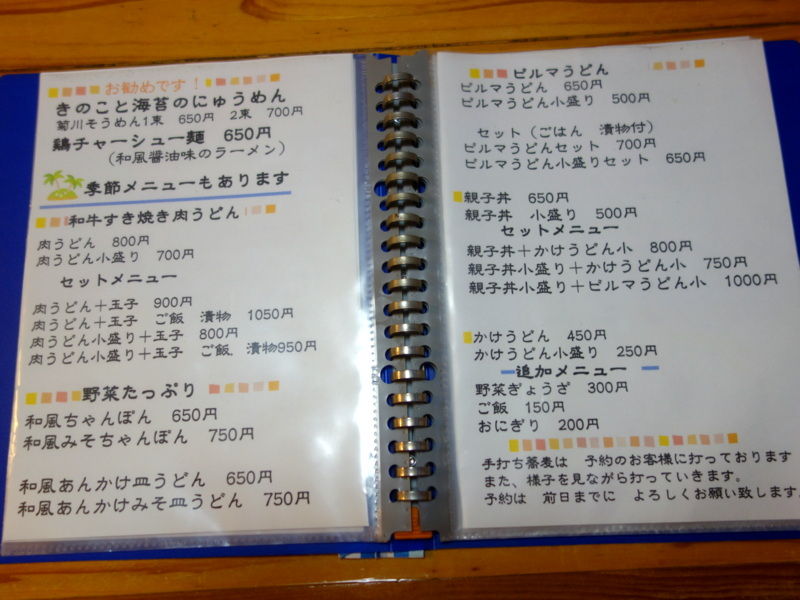 お勧めです！
きのこと海苔のにゅうめん
菊川そうめん1束 650円 2束 700円
鶏チャーシュー麺 650円
(和風醤油味のラーメン)
季節メニューもあります
和牛すき焼き肉うどん
肉うどん 800円
肉うどん小盛り 700円
セットメニュー
肉うどん＋玉子 900円
肉うどん＋玉子 ご飯 漬物 1050円
肉うどん小盛り＋玉子 800円
肉うどん小盛り＋玉子 ご飯．漬物950円
野菜たっぷり
和風ちゃんぽん 650円
和風みそちゃんぽん 750円
和風あんかけ皿うどん 650円
和風あんかけみそ皿うどん 750円
ビルマうどん
ビルマうどん 650円
ビルマうどん小盛り 500円
セット（ごはん 漬物付）
ビルマうどんセット 700円
ビルマうどん小盛りセット 650円
親子丼 650円
親子丼 小盛り 500円
セットメニュー
親子丼＋かけうどん小 800円
親子丼小盛り＋かけうどん小 750円
親子丼小盛り＋ビルマうどん小 1000円
かけうどん 450円
かけうどん小盛り 250円
追加メニュー
野菜ぎょうざ 300円
ご飯 150円
おにぎり 200円
手打ち蕎麦は 予約のお客様に打っております
また、様子を見ながら打っていきます。
予約は 前日までに よろしくお願い致します.